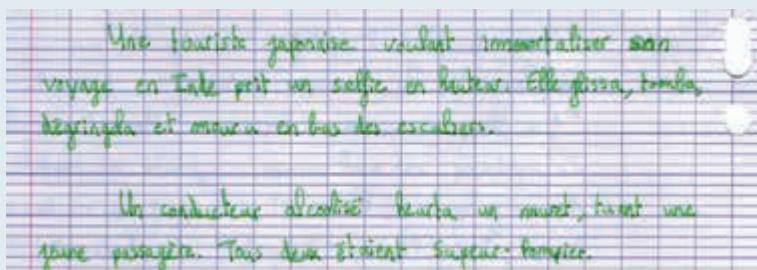 Une touriste japonaise voulant immortaliser son
voyage en Inde prit un selfie en hauteur. Elle glissa, tomba,
dégringola et mouru en bas des escaliers.
Un conducteur alcoolisé heurta un muret, tuant une
jeune passagère. Tous deux étaient Sapeur-Pompier.